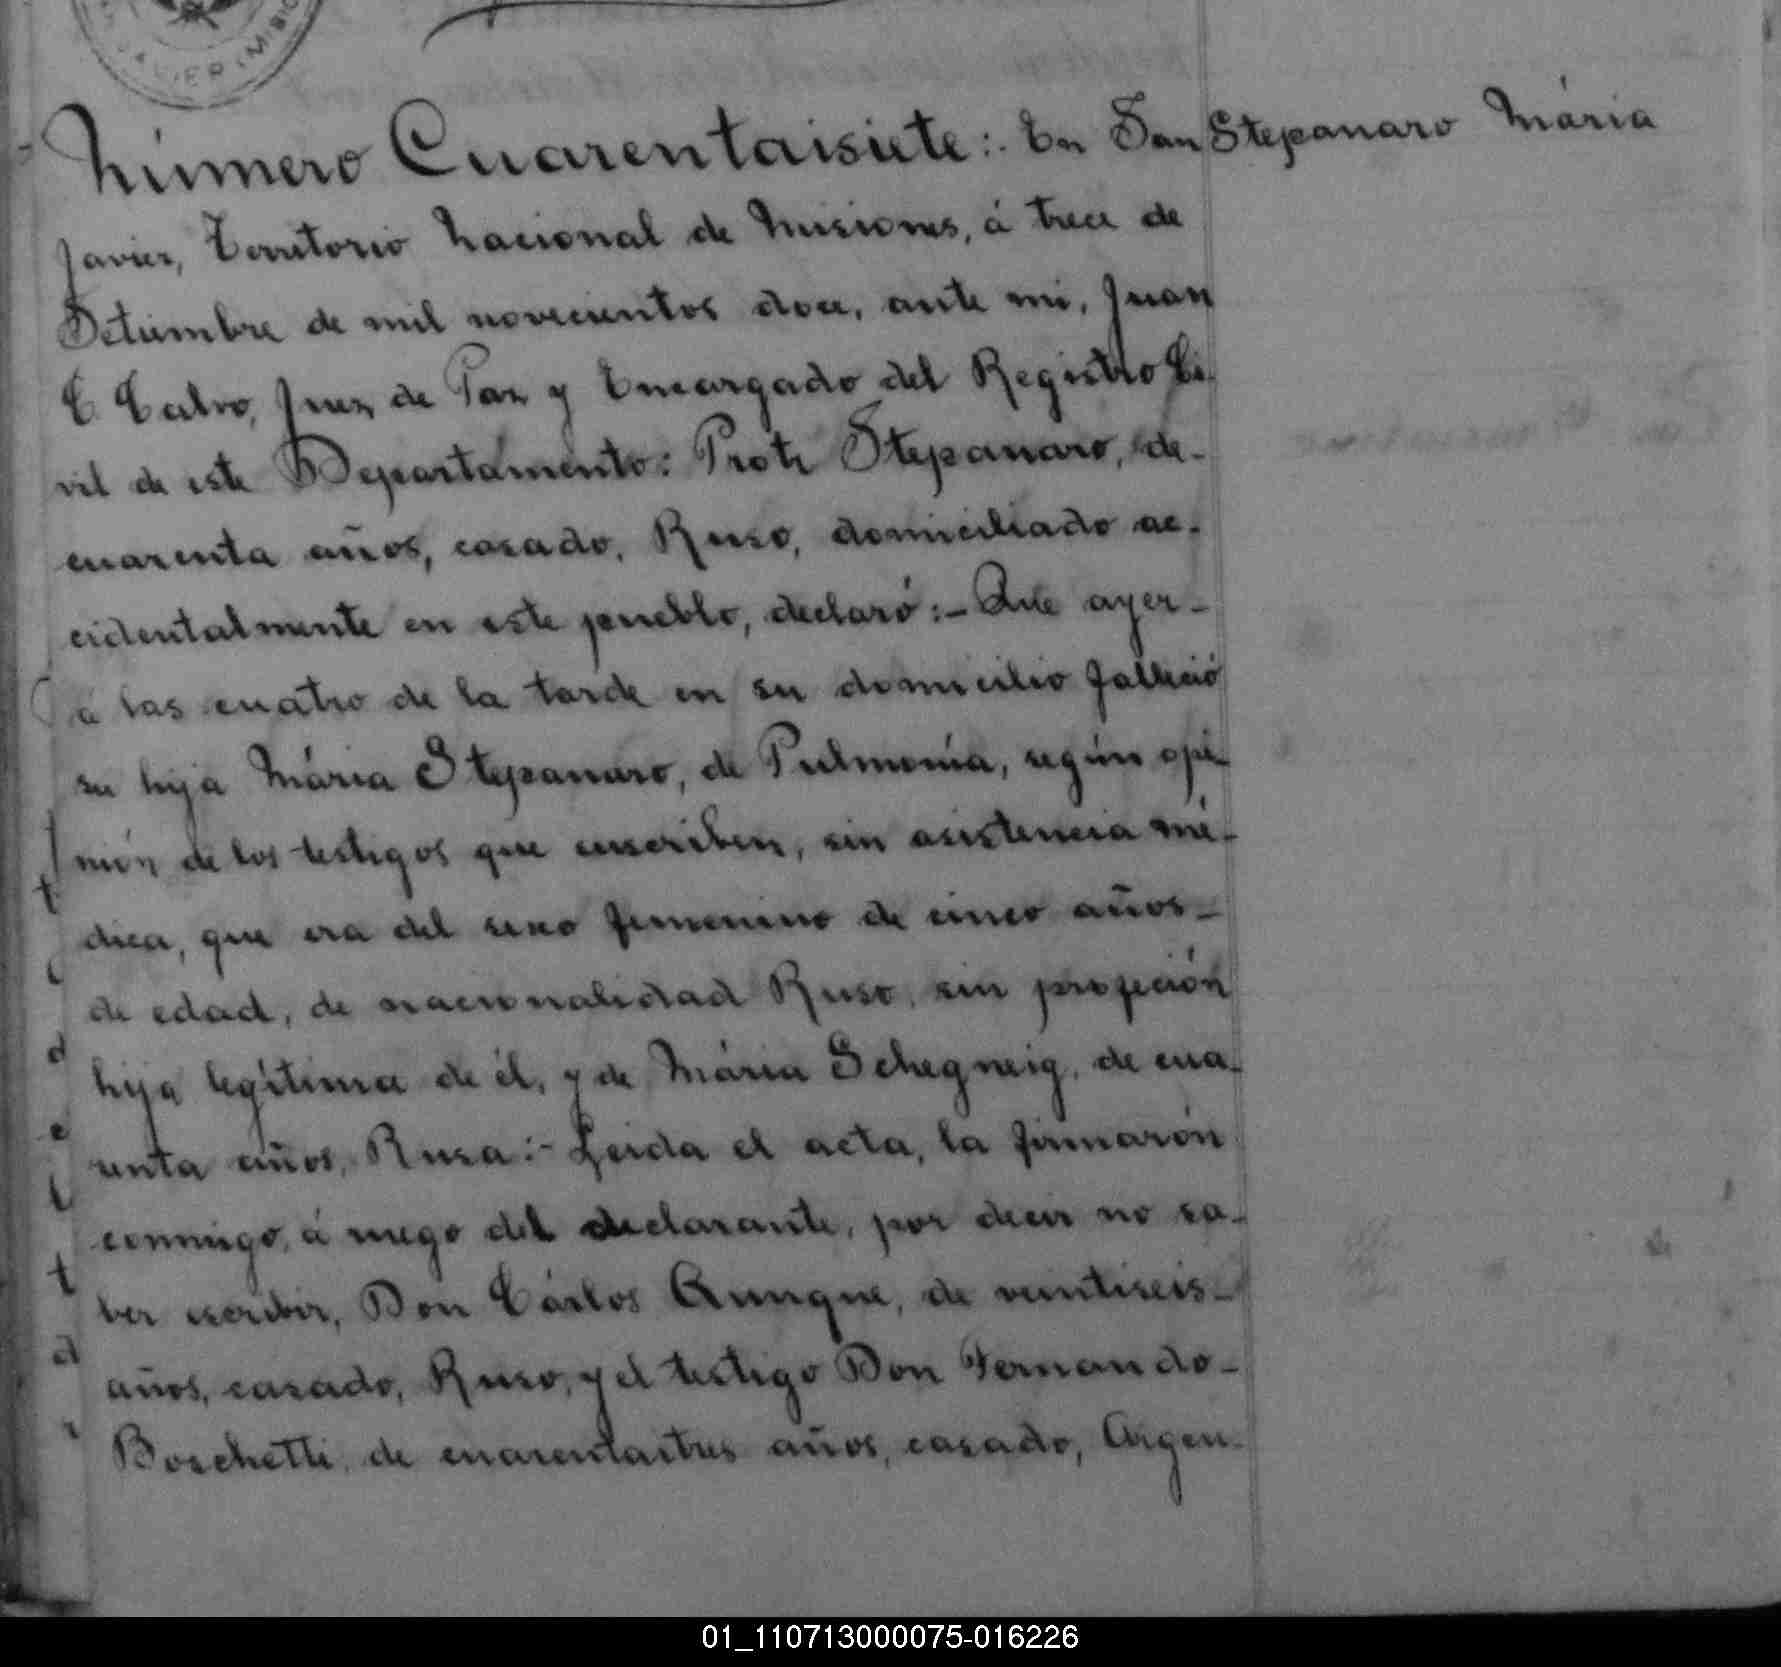 Número Cuarentaisiete: En San Stepanaro Mária
Javier, Territorio Nacional de Misiones, á trece de
Setiembre de mil novecientos doce, ante mi, Juan
C Calvo, Juez de Paz y Encargado del Registro Ci-
vil de este Departamento: Protz Stepanaro, de-
cuarenta años, casado, Ruso, domiciliado ac-
cidentalmente en este pueblo, declaró:- Que ayer-
á las cuatro de la tarde en su domicilio falleció
su hija Mária Stepanaro, de Pulmonía, según opi-
nión de los testigos que suscriben, sin asistencia mé-
dica, que era del sexo femenino de cinco años-
de edad, de nacionalidad Ruso, sin profeción
hija legítima de él, y de Mária Schegneig, de cua-
renta años, Rusa:- Leida el acta, la firmarón
conmigo, á ruego del declarante, por decir no sa-
ber escribir, Don Cárlos Aunque, de veintiseis-
años, casado, Ruso, y el testigo Don Fernando-
Boschetti, de cuarentaitres años, casado, Argen-
01_110713000075-016226